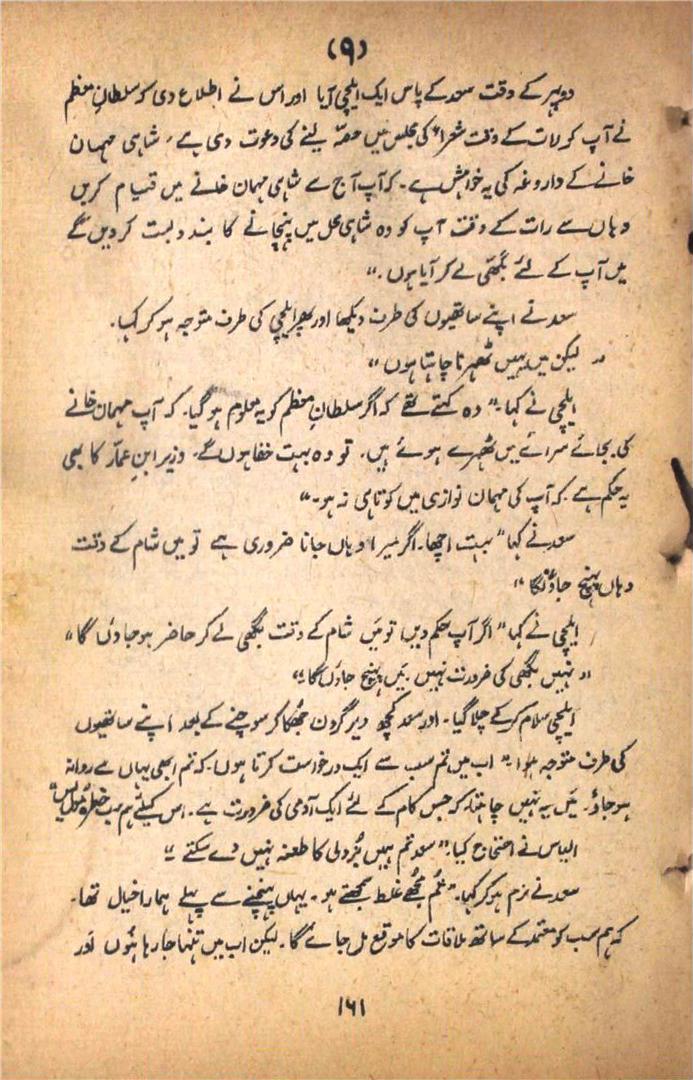 (۹)
دوپہر کے وقت سعد کے پاس ایک ایلچی آیا اور اس نے اطلاع دی کہ سلطانِ معظم
نے آپ کو رات کے وقت شعراء کی مجلس میں حصہ لینے کی دعوت دی ہے، شاہی مہمان
خانے کے داروغہ کی یہ خواہش ہے۔ کہ آپ آج سے شاہی مہمان خانے میں قیام کریں
وہاں سے رات کے وقت آپ کو وہ شاہی محل میں پہنچانے کا بندوبست کر دیں گے
میں آپ کے لئے بگھی لے کر آیا ہوں۔"
سعد نے اپنے ساتھیوں کی طرف دیکھا اور پھر ایلچی کی طرف متوجہ ہو کر کہا۔
"لیکن میں یہیں ٹھہرنا چاہتا ہوں"
ایلچی نے کہا۔" وہ کہتے تھے کہ اگر سلطانِ معظم کو یہ معلوم ہو گیا۔ کہ آپ مہمان خانے
کی بجائے سرائے میں ٹھہرے ہوئے ہیں۔ تو وہ بہت خفا ہوں گے۔ وزیر ابنِ عمار کا بھی
یہ حکم ہے کہ آپ کی مہمان نوازی میں کوتاہی نہ ہو۔"
سعد نے کہا "بہت اچھا۔ اگر میرا وہاں جانا ضروری ہے تو میں شام کے وقت
وہاں پہنچ جاؤنگا"
ایلچی نے کہا" اگر آپ حکم دیں تو میں شام کے وقت بگھی لے کر حاضر ہو جاؤں گا"
"نہیں بگھی کی ضرورت نہیں۔ میں پہنچ جاؤں گا"
ایلچی سلام کر کے چلا گیا۔ اور سعد کچھ دیر گردن جھکا کر سوچنے کے بعد اپنے ساتھیوں
کی طرف متوجہ ہوا۔" اب میں تم سب سے ایک درخواست کرتا ہوں۔ کہ تم ابھی یہاں سے روانہ
ہو جاؤ۔ میں یہ نہیں چاہتا کہ جس کام کے لئے ایک آدمی کی ضرورت ہے۔ اس کیلئے ہم سب خطرہ مول لیں"
الیاس نے احتجاج کیا۔" سعد تم ہمیں بزدلی کا طعنہ نہیں دے سکتے"
سعد نے نرم ہو کر کہا۔" تم مجھے غلط سمجھتے ہو۔ یہاں پہنچنے سے پہلے ہمارا خیال تھا۔
کہ ہم سب کو معتمد کے ساتھ ملاقات کا موقع مل جائے گا۔ لیکن اب میں تنہا جا رہا ہوں اور
۱۶۱